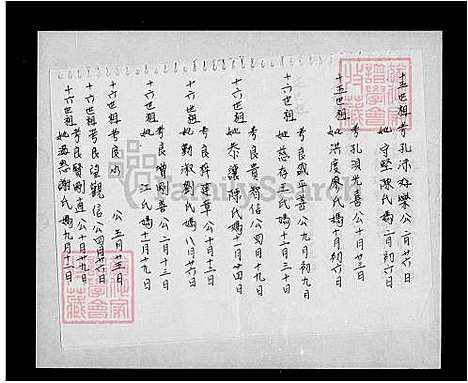 十五世祖考孔沛公二月廿六日
妣守堅陳氏媽二月初六日
十五世祖考孔須光喜公十月廿三日
妣洪度廖氏媽十月初六日
十六世祖考良盛平善公九月初九日
妣慈存王氏媽十二月三十日
十六世祖考良貴智信公四月十九日
妣恭讓陳氏媽十一月廿四日
十六世祖考良舜建章公十月十三日
妣勤淑劉氏媽八月廿六日
十六世祖考良增剛喜公二月十三日
妣江氏媽十一月十九日
十六世祖考良水公五月廿五日
十六世祖考良望觀信公四月廿六日
十六世祖考良賢剛直公十月廿九日
妣溫慈謝氏媽九月十一日
FamilySearch